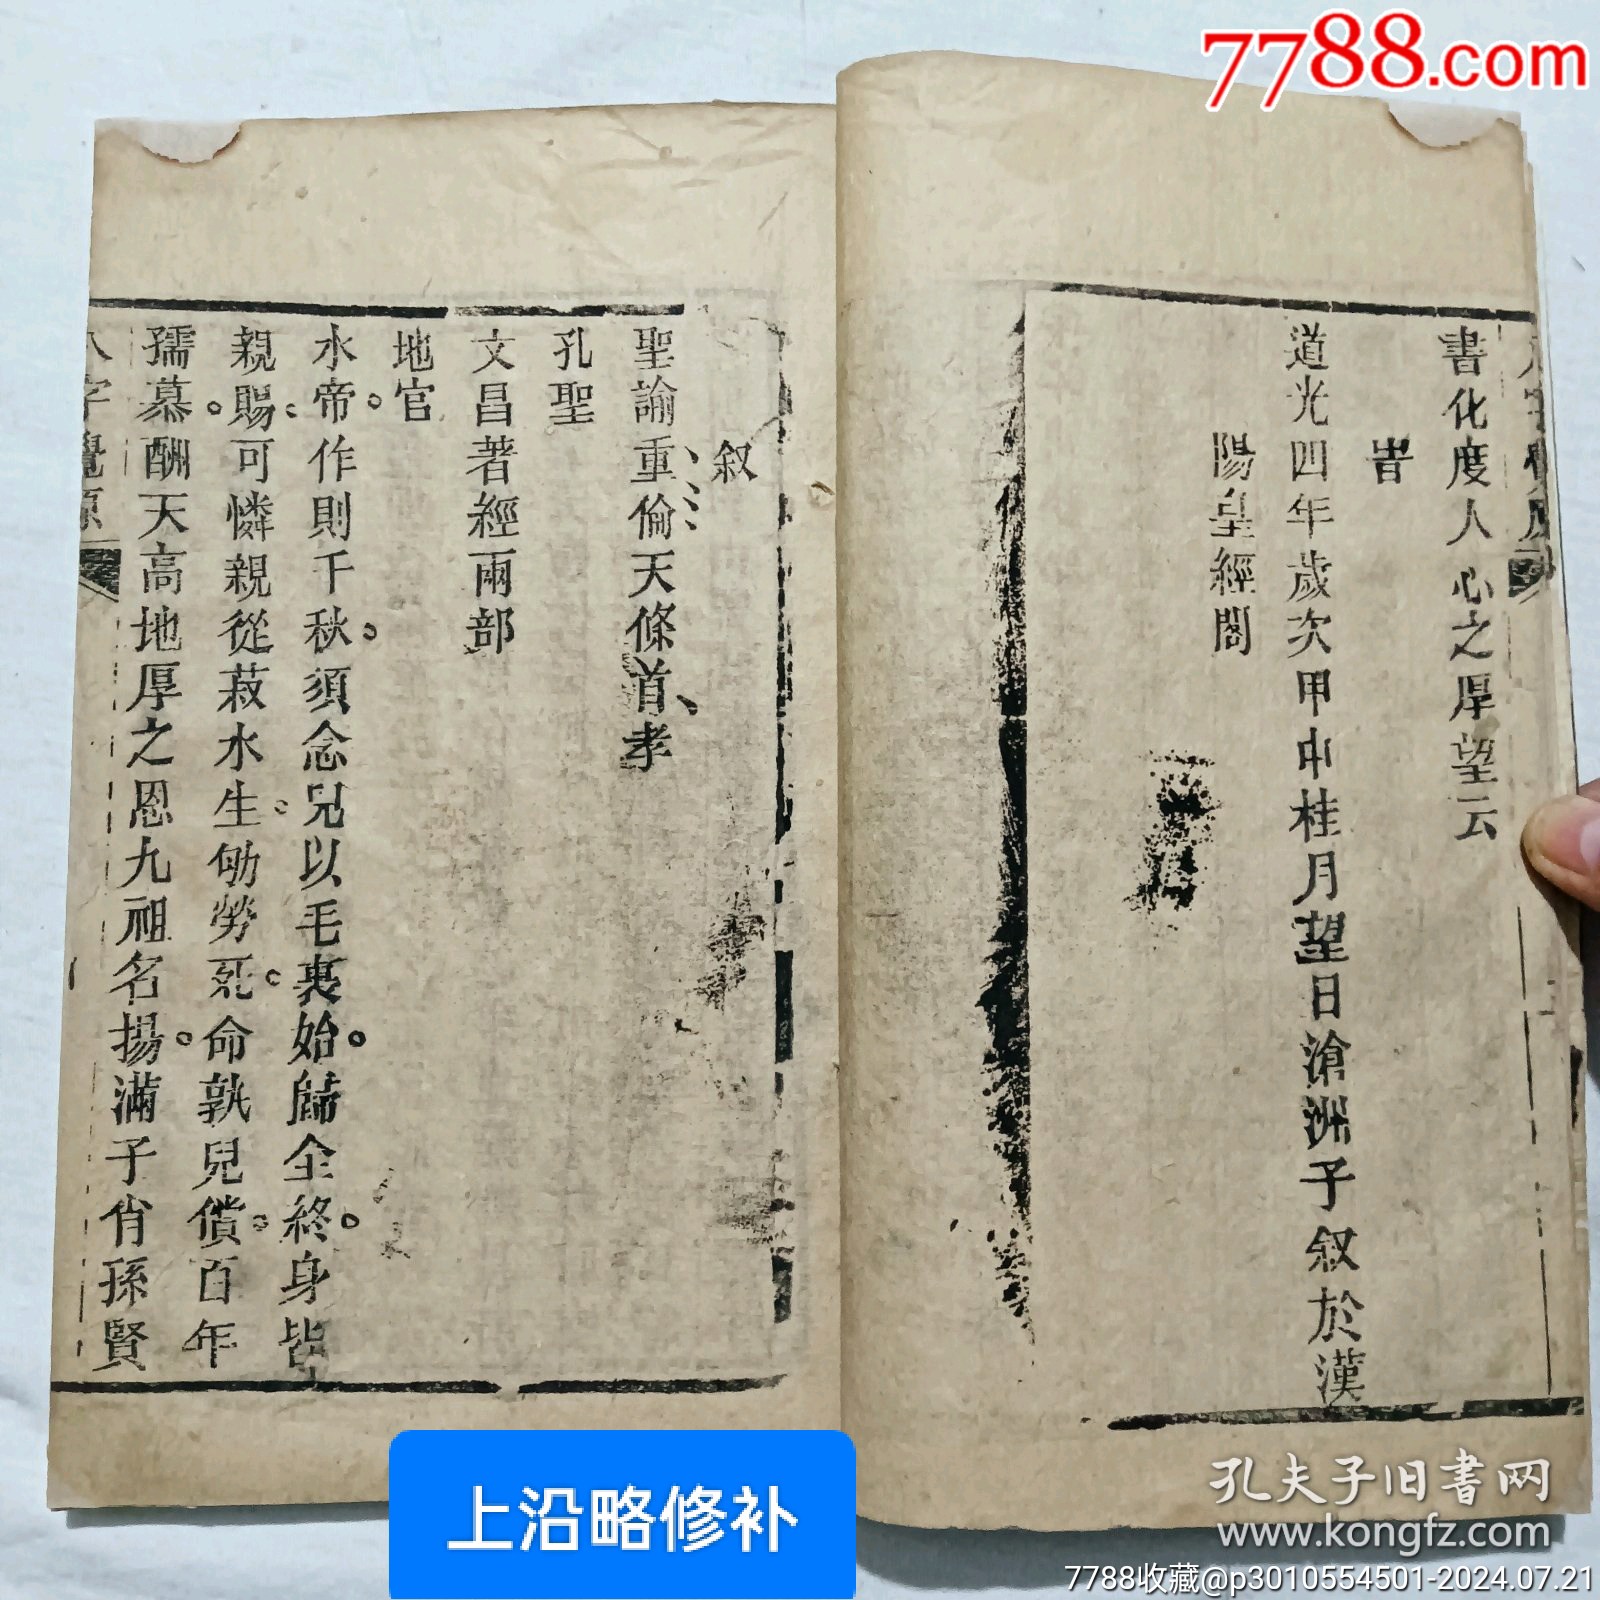 7788.com
書化度人心之厚望云
旹
道光四年歲次甲申桂月望日滄洲子叙於漢
陽皇經閣
叙
聖諭重倫天條首孝
孔聖
文昌著經兩部
地官
水帝作則千秋。須念兒以毛裏始。歸全終。身皆
親賜。可憐親從菽水生。劬勞死。命孰兒償。百年
孺慕。酬天高地厚之恩九祖名揚。滿子肖孫賢
八字覺原
上沿略修补
孔夫子旧書网
www.kongfz.com
7788收藏@p3010554501-2024.07.21